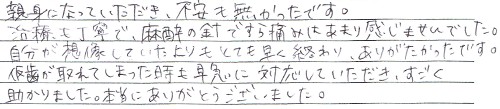 親身になっていただき、不安も無かったです。
治療も丁寧で、麻酔の針ですら痛みはあまり感じませんでした。
自分が想像していたよりもとても早く終わり、ありがたかったです。
仮歯が取れてしまった時も早急に対応していただき、すごく
助かりました。本当にありがとうございました。